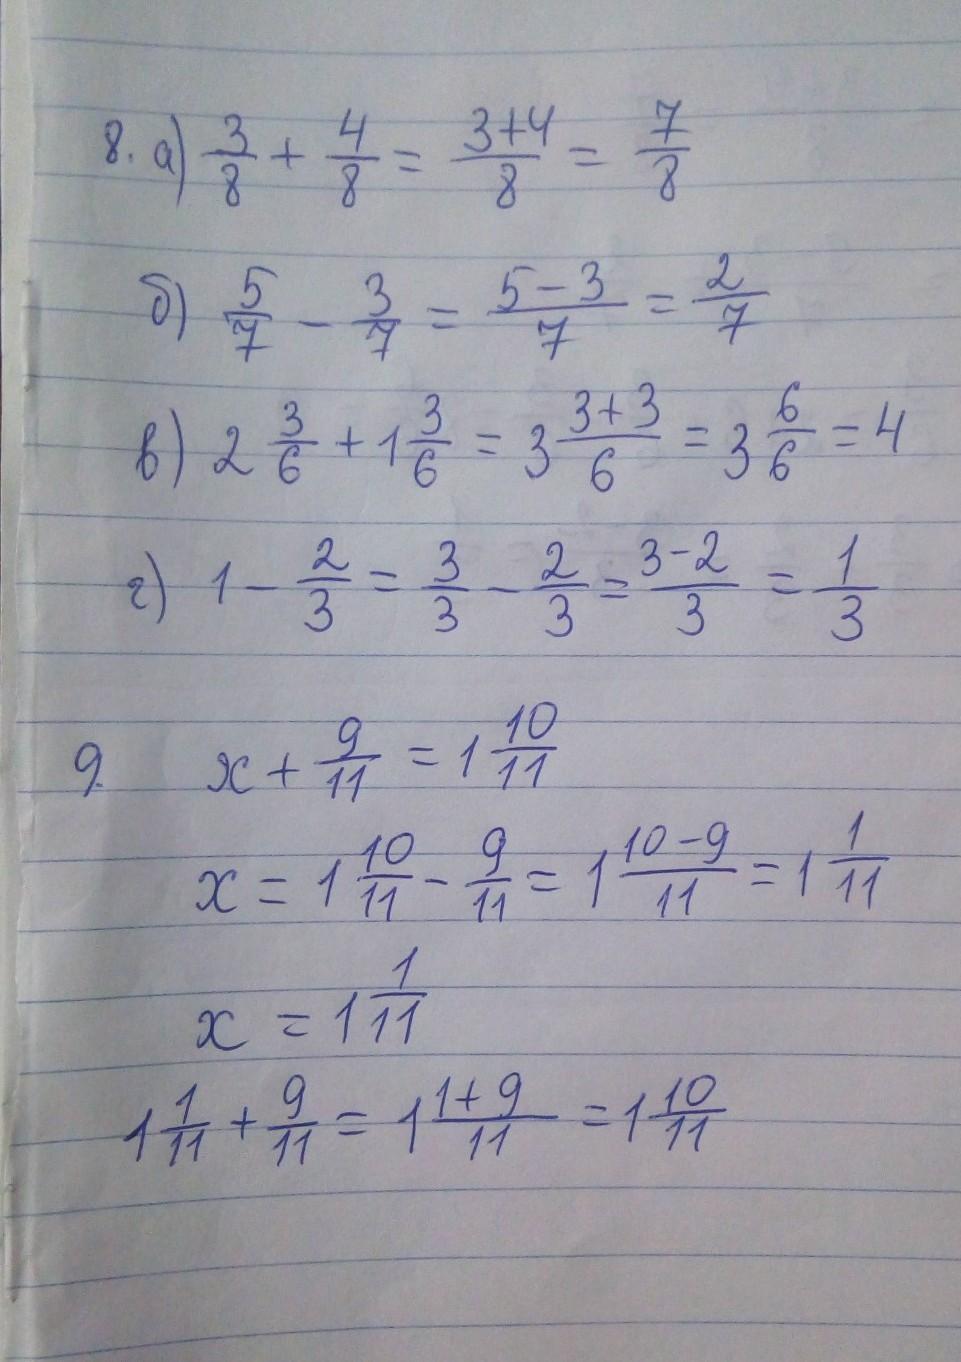 8. а) 3/8 + 4/8 = (3+4)/8 = 7/8
б) 5/7 − 3/7 = (5−3)/7 = 2/7
в) 2 3/6 + 1 3/6 = 3 (3+3)/6 = 3 6/6 = 4
г) 1 − 2/3 = 3/3 − 2/3 = (3−2)/3 = 1/3
9. x + 9/11 = 1 10/11
x = 1 10/11 − 9/11 = 1 (10−9)/11 = 1 1/11
x = 1 1/11
1 1/11 + 9/11 = 1 (1+9)/11 = 1 10/11